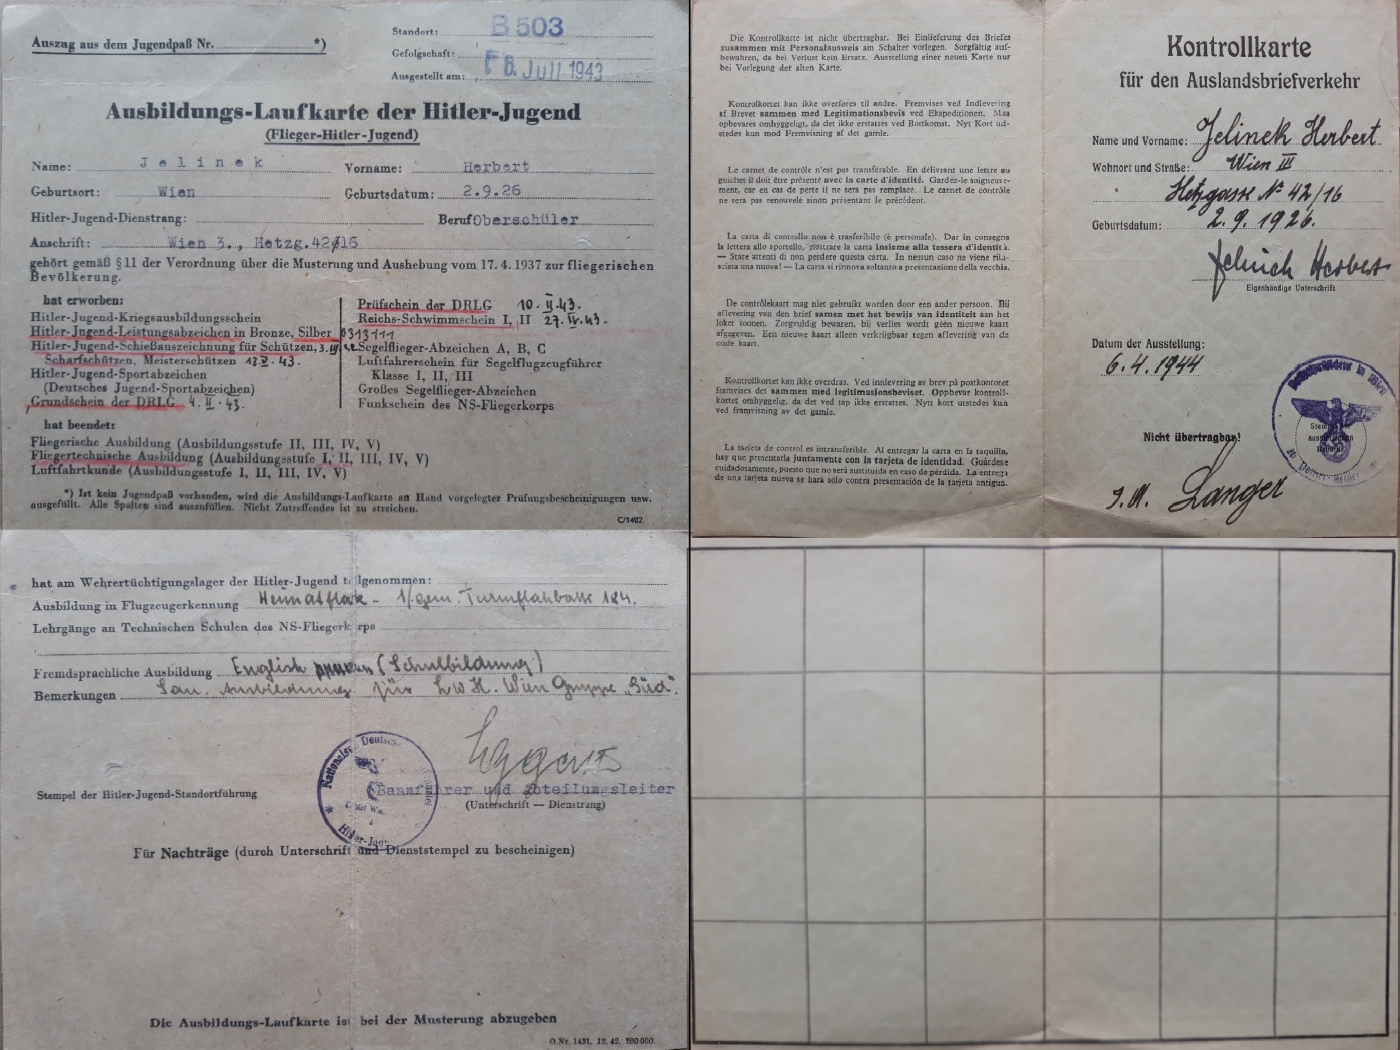 Auszug aus dem Jugendpaß Nr. *)
Standort: B 503
Gefolgschaft:
Ausgestellt am: Juli 1943
Ausbildungs-Laufkarte der Hitler-Jugend
(Flieger-Hitler-Jugend)
Name: Jelinek Vorname: Herbert
Geburtsort: Wien Geburtsdatum: 2.9.26
Hitler-Jugend-Dienstrang: Beruf Oberschüler
Anschrift: Wien 3., Hetzg.42/16
gehört gemäß § 11 der Verordnung über die Musterung und Aushebung vom 17. 4. 1937 zur fliegerischen
Bevölkerung.
hat erworben:
Hitler-Jugend-Kriegsausbildungsschein
Hitler-Jugend-Leistungsabzeichen in Bronze, Silber 313111
Hitler-Jugend-Schießauszeichnung für Schützen,
Scharfschützen, Meisterschützen 13.V.43.
Hitler-Jugend-Sportabzeichen
(Deutsches Jugend-Sportabzeichen)
Grundschein der DRLG 4.II.43.
Prüfschein der DRLG 10.II.43.
Reichs-Schwimmschein I, II 27.IV.43.
Segelflieger-Abzeichen A, B, C
Luftfahrerschein für Segelflugzeugführer
Klasse I, II, III
Großes Segelflieger-Abzeichen
Funkschein des NS-Fliegerkorps
hat beendet:
Fliegerische Ausbildung (Ausbildungsstufe II, III, IV, V)
Fliegertechnische Ausbildung (Ausbildungsstufe I, II, III, IV, V)
Luftfahrtkunde (Ausbildungsstufe I, II, III, IV, V)
*) Ist kein Jugendpaß vorhanden, wird die Ausbildungs-Laufkarte an Hand vorgelegter Prüfungsbescheinigungen usw.
ausgefüllt. Alle Spalten sind auszufüllen. Nicht Zutreffendes ist zu streichen.
C/1402
Die Kontrollkarte ist nicht übertragbar. Bei Einlieferung des Briefes
zusammen mit Personalausweis am Schalter vorlegen. Sorgfältig auf-
bewahren, da bei Verlust kein Ersatz. Ausstellung einer neuen Karte nur
bei Vorlegung der alten Karte.
Kontrolkortet kan ikke overføres til andre. Fremvises ved Indlevering
af Brevet sammen med Legitimationsbevis ved Ekspeditionen. Maa
opbevares omhyggeligt, da det ikke erstattes ved Bortkomst. Nyt Kort ud-
stedes kun mod Fremvisning af det gamle.
Le carnet de contrôle n'est pas transférable. En délivrant une lettre au
guichet il doit être présenté avec la carte d'identité. Gardez-le soigneuse-
ment, car en cas de perte il ne sera pas remplacé. Le carnet de contrôle
ne sera pas renouvelé sinon présentant le précédent.
La carta di controllo non è trasferibile (è personale). Dar in consegna
la lettera allo sportello, mostrare la carta insieme alla tessera d'identità.
— Stare attenti di non perdere questa carta. In nessun caso ne viene rila-
sciata una nuova! — La carta si rinnova soltanto a presentazione della vecchia.
De contrôlekaart mag niet gebruikt worden door een ander persoon. Bij
aflevering van den brief samen met het bewijs van identiteit aan het
loket toonen. Zorgvuldig bewaren, bij verlies wordt géén nieuwe kaart
afgegeven. Een nieuwe kaart alleen verkrijgbaar tegen aflevering van de
oude kaart.
Kontrollkortet kan ikke overdras. Ved innlevering av brev på postkontoret
framvises det sammen med legitimasjonsbeviset. Oppbevar kontroll-
kortet omhyggelig, da det ved tap ikke erstattes. Nytt kort utstedes kun
ved framvisning av det gamle.
La tarjeta de control es intransferible. Al entregar la carta en la taquilla,
hay que presentarla juntamente con la tarjeta de identidad. Guárdese
cuidadosamente, puesto que no será sustituida en caso de pérdida. La entrega
de una tarjeta nueva se hará sólo contra presentación de la tarjeta antigua.
Kontrollkarte
für den Auslandsbriefverkehr
Name und Vorname: Jelinek Herbert
Wohnort und Straße: Wien III
Hetzgasse Nº 42/16
Geburtsdatum: 2.9.1926.
Jelinek Herbert
Eigenhändige Unterschrift
Datum der Ausstellung:
6.4.1944
Stempel der
ausstellenden
Behörde
Nicht übertragbar!
I.A. Langer
hat am Wehrertüchtigungslager der Hitler-Jugend teilgenommen:
Ausbildung in Flugzeugerkennung Heimatflak - 1/gem. Turmflakbatt 184.
Lehrgänge an Technischen Schulen des NS-Fliegerkorps
Fremdsprachliche Ausbildung English (Schulbildung)
Bemerkungen San. Ausbildung für LwH. Wien Gruppe „Süd".
Stempel der Hitler-Jugend-Standortführung
Hitler-Jugend
Eggert
Bannführer und Abteilungsleiter
(Unterschrift — Dienstrang)
Für Nachträge (durch Unterschrift und Dienststempel zu bescheinigen)
Die Ausbildungs-Laufkarte ist bei der Musterung abzugeben
O.Nr. 1431. 12. 42. 200 000.